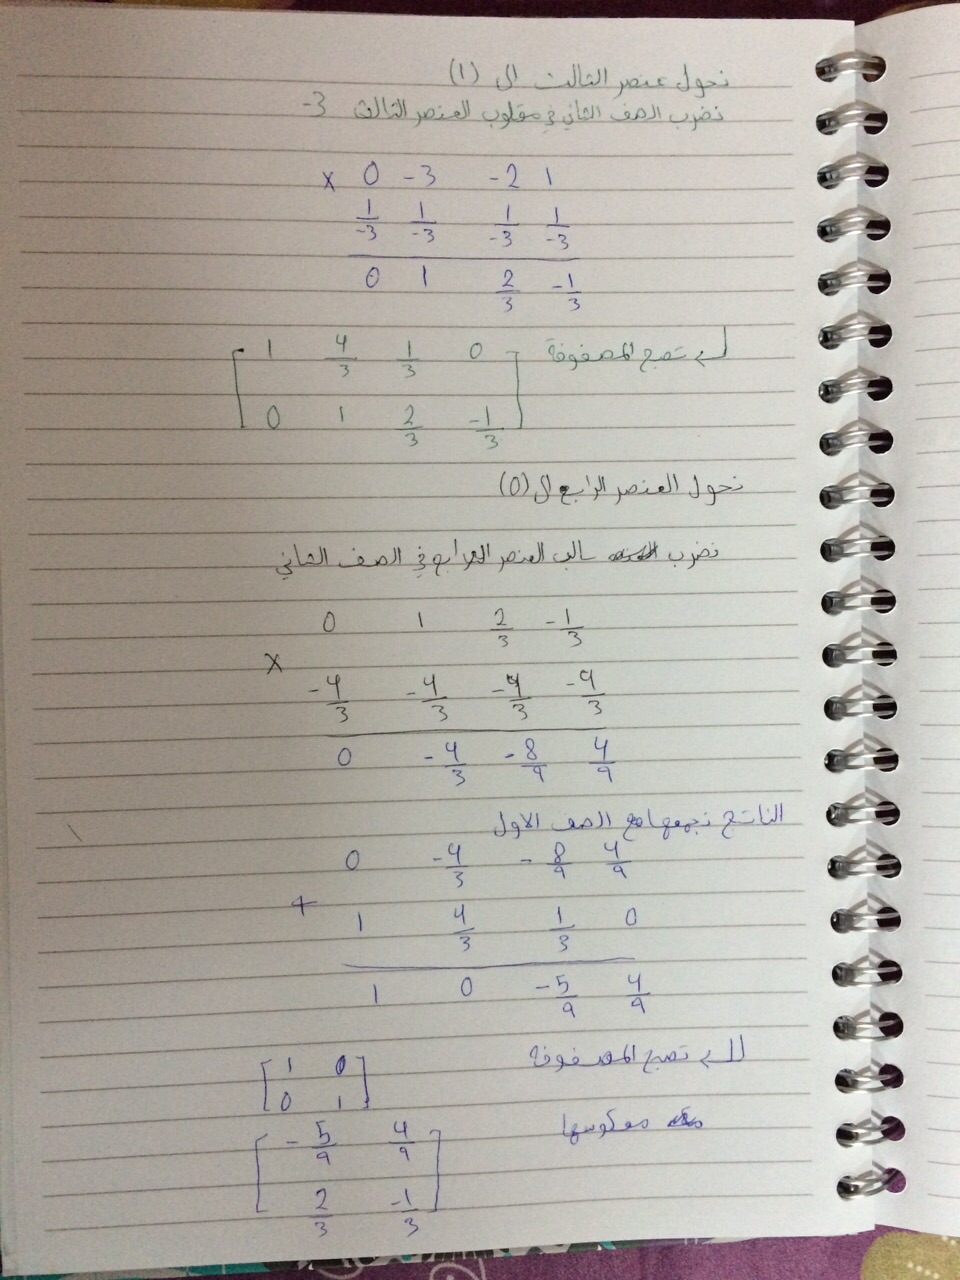 نحول عنصر الثالث الى (1)
نضرب الصف الثاني في مقلوب العنصر الثالث 3-
× 0 -3 -2 1
1/-3 1/-3 1/-3 1/-3
0 1 2/3 -1/3
تصبح المصفوفة
1 4/3 1/3 0
0 1 2/3 -1/3
نحول العنصر الرابع ال (0)
نضرب سالب العنصر الرابع في الصف الثاني
0 1 2/3 -1/3
×
-4/3 -4/3 -4/3 -4/3
0 -4/3 -8/9 4/9
الناتج نجمعها مع الصف الاول
0 -4/3 -8/9 4/9
+
1 4/3 1/3 0
1 0 -5/9 4/9
تصبح المصفوفة
1 0
0 1
معكوسها
-5/9 4/9
2/3 -1/3